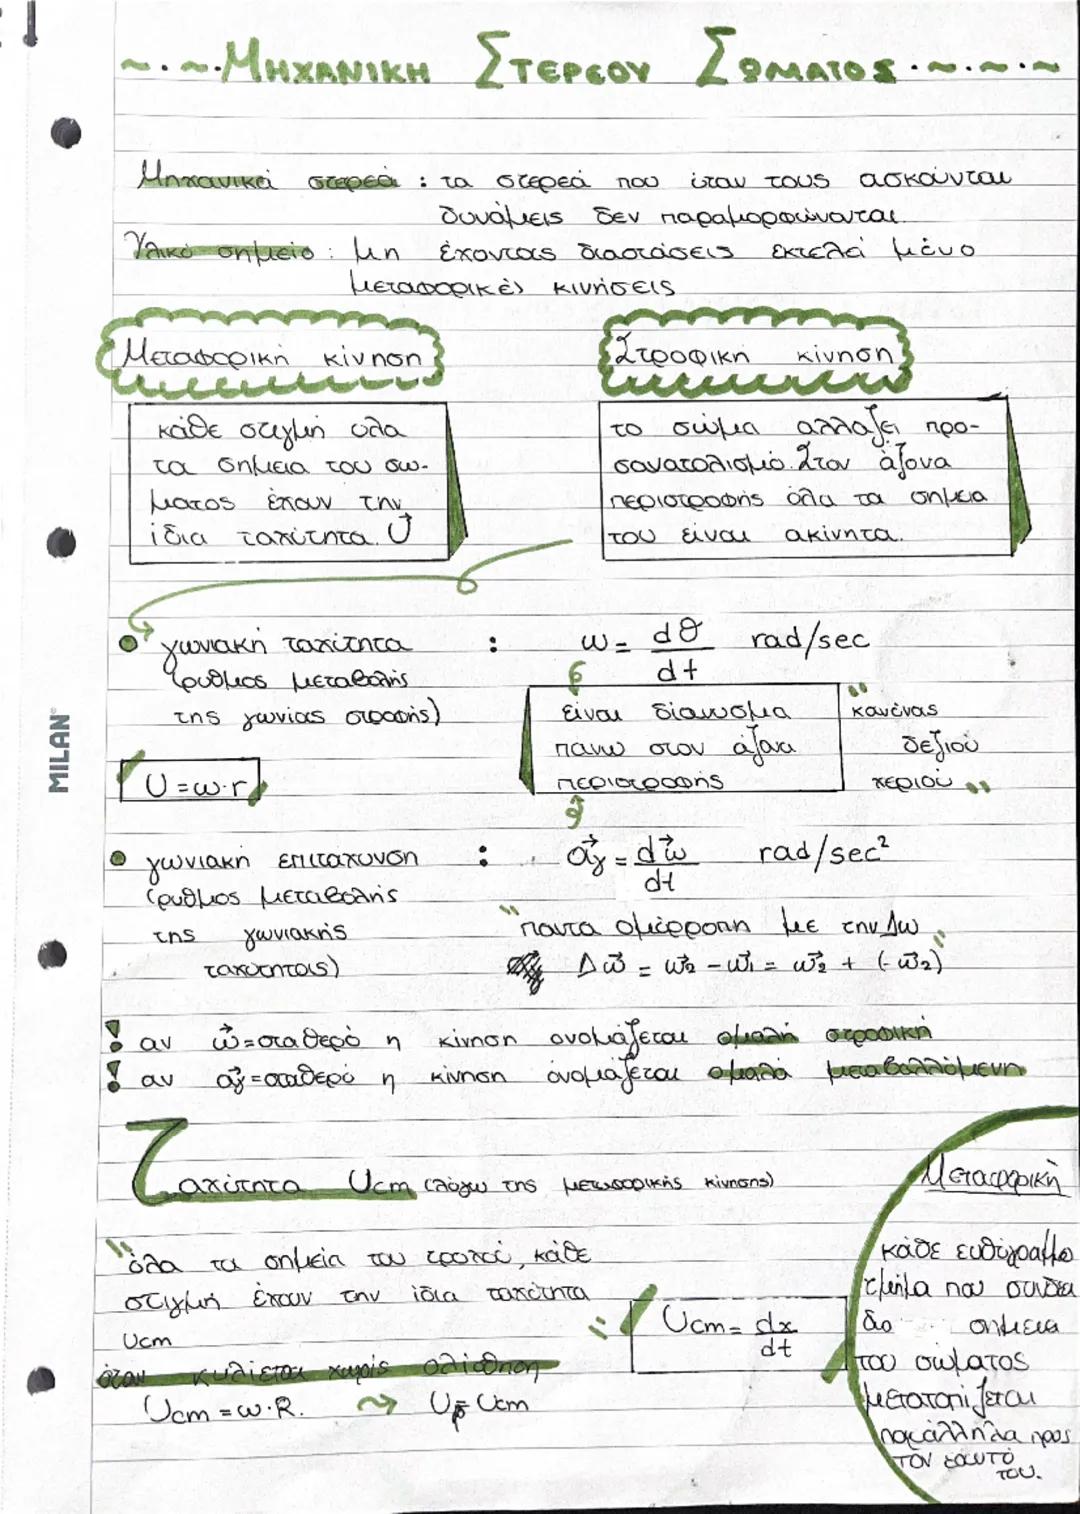 ~.~.ΜΗΧΑΝΙΚΗ ΣΤΕΡΕΟΥ ΣΩΜΑΤΟΣ.~.~.~
Μηχανικά στερεά : τα στερεά που όταν τους ασκούνται
δυνάμεις δεν παραμορφώνονται.
Υλικό σημείο : Μη έχοντας διαστάσεις εκτελεί μόνο
μεταφορικές κινήσεις
Μεταφορική κίνηση
Στροφική κίνηση
κάθε στιγμή όλα
τα σημεία του σω-
ματος έχουν την
ίδια ταχύτητα. U⃗
το σώμα αλλάζει προ-
σανατολισμό. Στον άξονα
περιστροφής όλα τα σημεία
του είναι ακίνητα.
γωνιακή ταχύτητα : ω = dθ/dt rad/sec
(ρυθμός μεταβολής
της γωνίας στροφής)
είναι διάνυσμα
πάνω στον άξονα
περιστροφής
"κανόνας
δεξιού
χεριού"
U = ω·r
γωνιακή επιτάχυνση : α⃗γ = dω⃗/dt rad/sec²
(ρυθμός μεταβολής
της γωνιακής
ταχύτητας)
"πάντα ομόρροπη με την Δω
Δω⃗ = ω⃗2 - ω⃗1 = ω⃗2 + (-ω⃗2)"
! αν ω⃗=σταθερό η κίνηση ονομάζεται ομαλή στροφική
! αν α⃗γ=σταθερό η κίνηση ονομάζεται ομαλά μεταβαλλόμενη
Ταχύτητα Ucm (λόγω της μεταφορικής κίνησης)
"όλα τα σημεία του τροχού, κάθε
στιγμή έχουν την ίδια ταχύτητα
Ucm "
Ucm = dx/dt
όταν κυλίεται χωρίς ολίσθηση
Ucm = ω·R. → Uγρ = Ucm
Μεταφορική
κάθε ευθύγραμμο
τμήμα που συνδέει
δυο σημεία
του σώματος
μετατοπίζεται
παράλληλα προς
τον εαυτό
του.
MILAN®